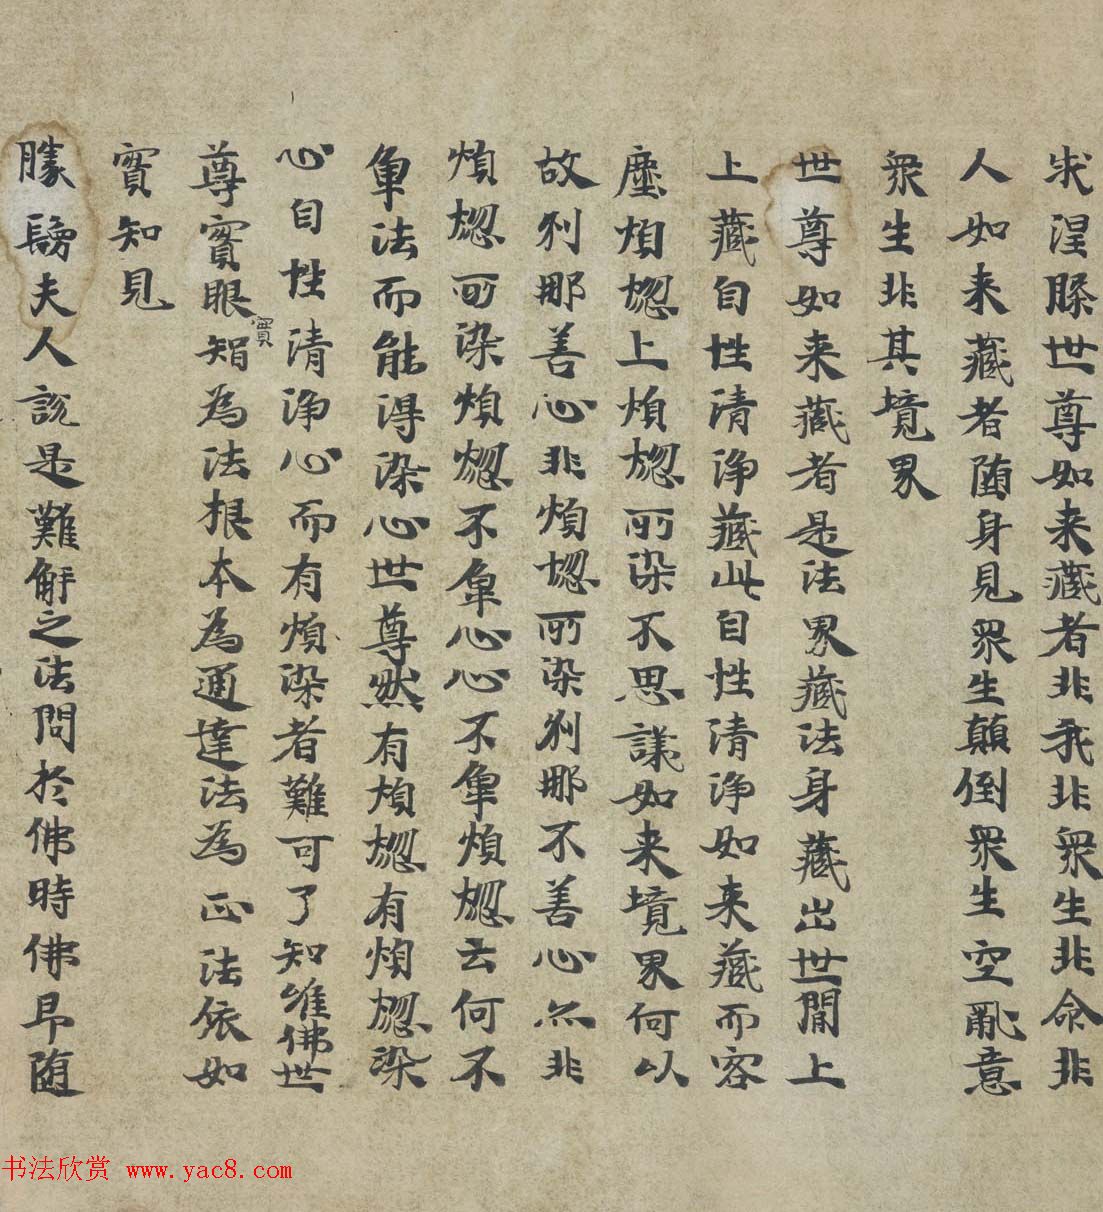 求涅槃世尊如来藏者非我非衆生非命非
人如来藏者随身見衆生顛倒衆生空亂意
衆生非其境界
世尊如来藏者是法界藏法身藏出世間上
上藏自性清浄藏此自性清浄如来藏而客
塵煩惱上煩惱所染不思議如来境界何以
故刹那善心非煩惱所染刹那不善心亦非
煩惱所染煩惱不觸心心不觸煩惱云何不
觸法而能得染心世尊然有煩惱有煩惱染
心自性清浄心而有煩染者難可了知唯佛世
尊實眼實智為法根本為通達法為正法依如
實知見
勝鬘夫人說是難解之法問於佛時佛即随
书法欣赏 www.yac8.com